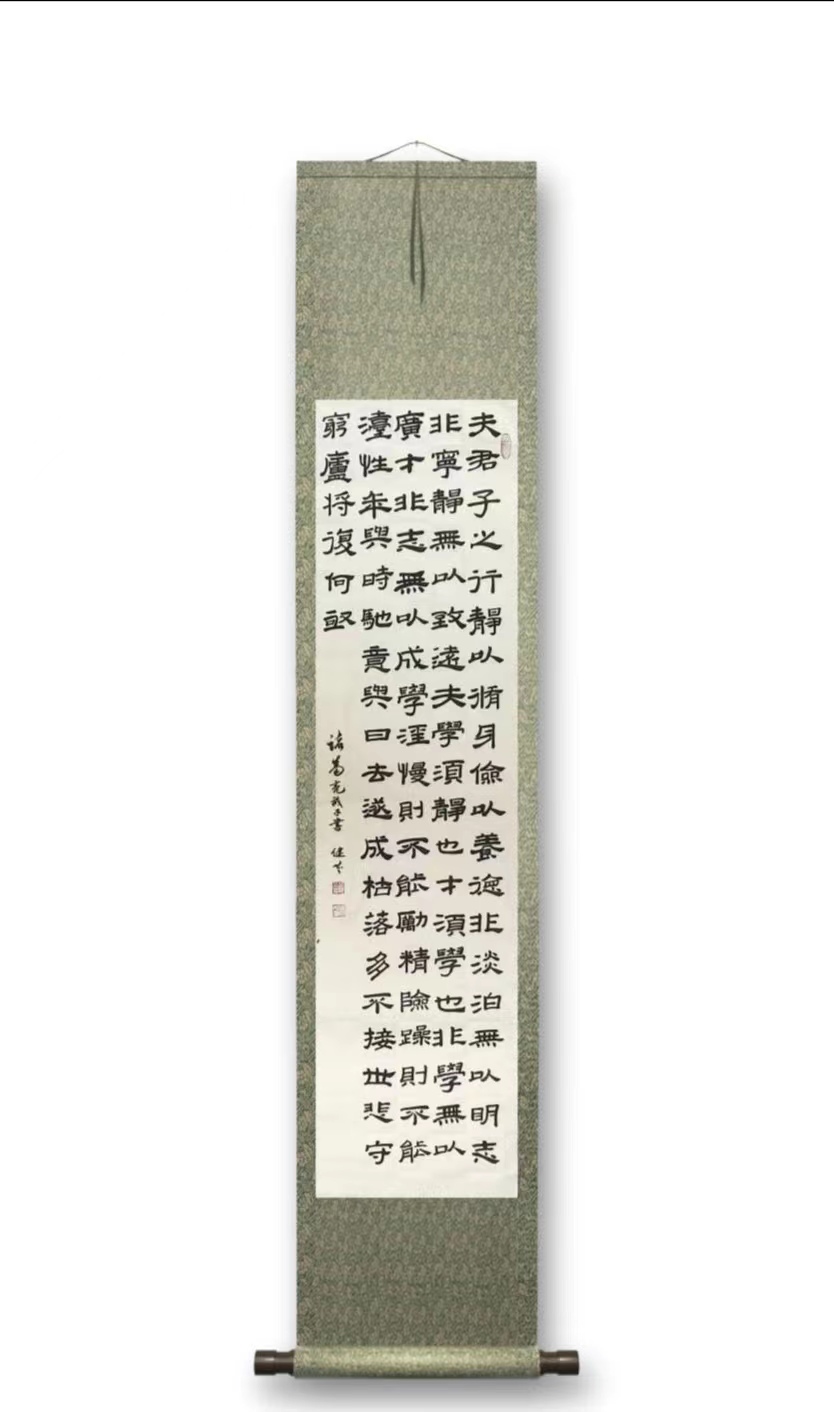 夫君子之行靜以脩身儉以養德非淡泊無以明志
非寧靜無以致遠夫學須靜也才須學也非學無以
廣才非志無以成學淫慢則不能勵精險躁則不能
治性年與時馳意與日去遂成枯落多不接世悲守
窮廬將復何及
諸葛亮誡子書